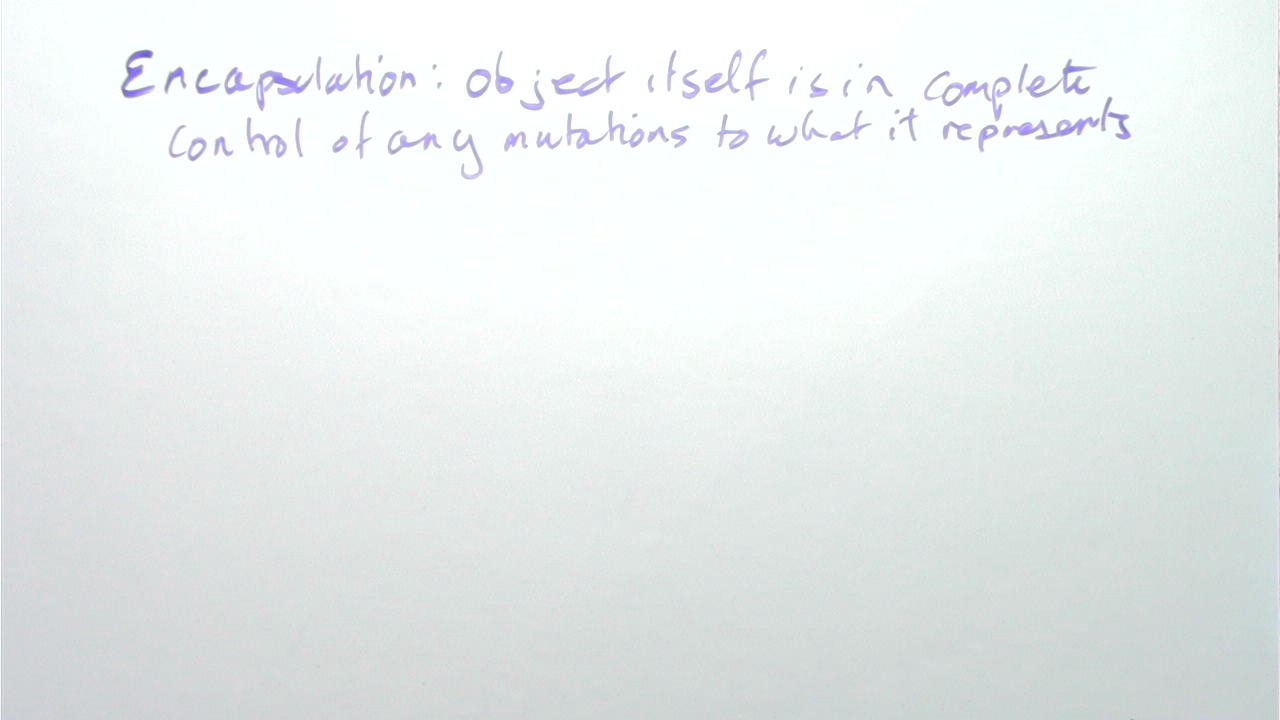 Encapsulation: object itself is in complete
control of any mutations to what it represents